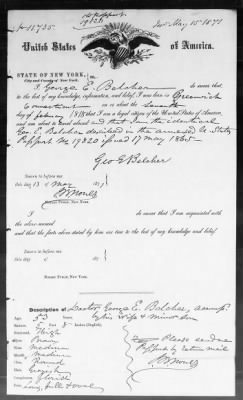 No 11735
Iss May 15 1871
United States
of America.
STATE OF NEW YORK,
City and County of New York
I, George E. Belcher do swear that
to the best of my knowledge, information, and belief, I was born in Greenwich
Connecticut on or about the Seventh
day of February 1818 that I am a legal citizen of the United States of America,
and am about to travel abroad and that I am the identical
Geo. E. Belcher described in the annexed U. States
Passport No 19820 issued 17 May 1865
Geo E Belcher
Sworn to before me
this 13 of May 1871
NOTARY PUBLIC, NEW YORK.
I do swear that I am acquainted with
the above-named
and that the facts above stated by him are true to the best of my knowledge and belief.
Sworn to before me
this day of 187
NOTARY PUBLIC, NEW YORK.
Description of Doctor George E. Belcher, accomp.
by his wife & minor son
Age, 53 Years
Stature, 5 Feet 8 Inches (English)
Forehead, High
Eyes,
Nose, Medium
Mouth, Medium
Chin, Round
Hair, Grayish
Complexion, Florid
Face, Long, full & oval
Please send me
Passport by return mail